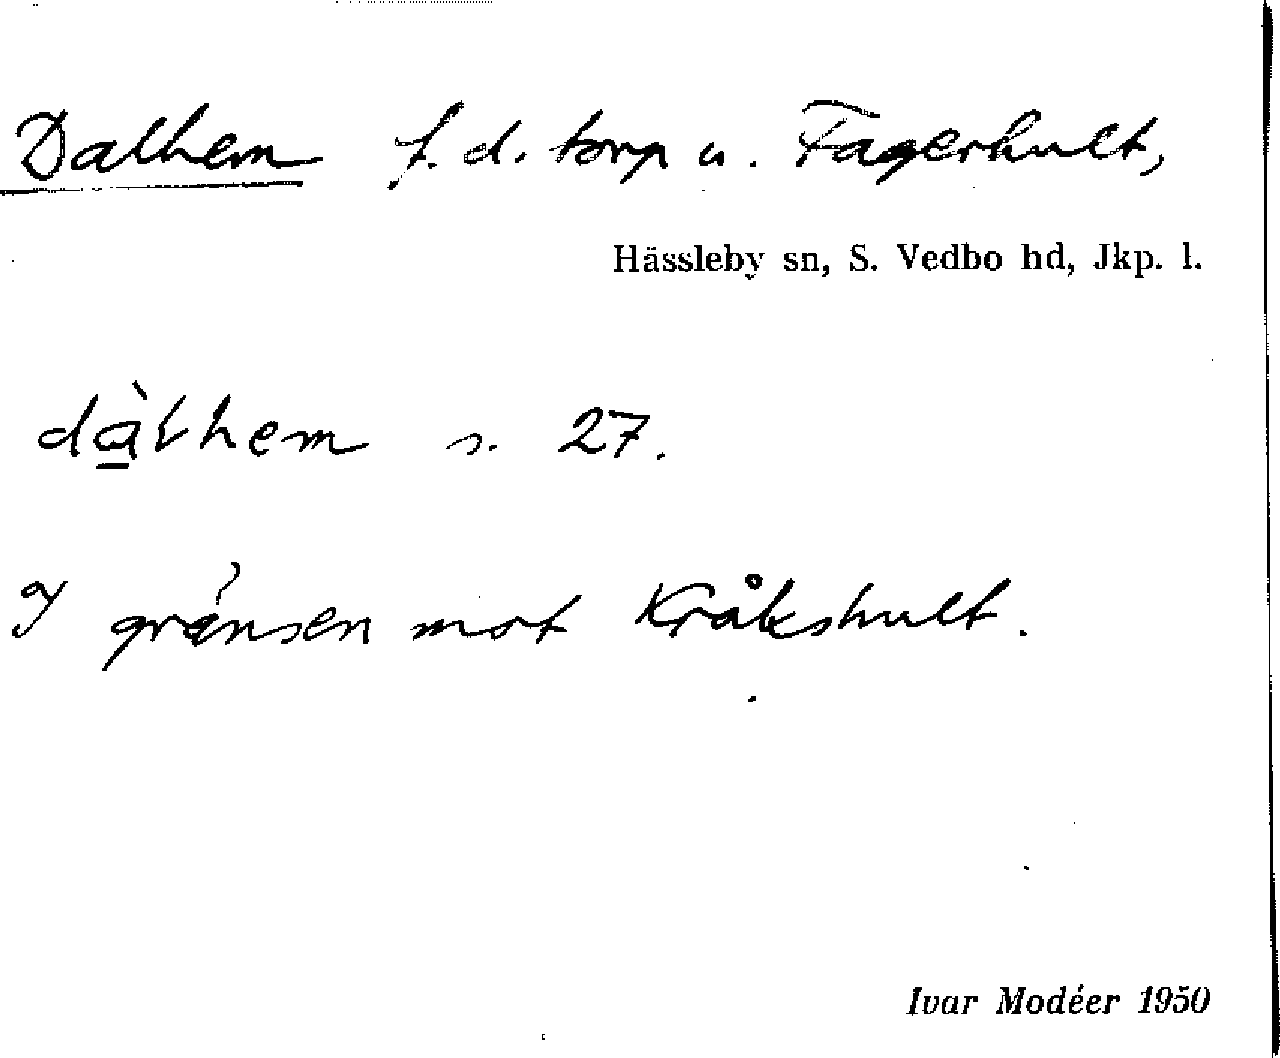 Dalhem f. d. torp u. Fagerhult,
Hässleby sn, S. Vedbo hd, Jkp. l.
dà̱lhem s. 27.
I gränsen mot Kråkshult.
Ivar Modéer 1950